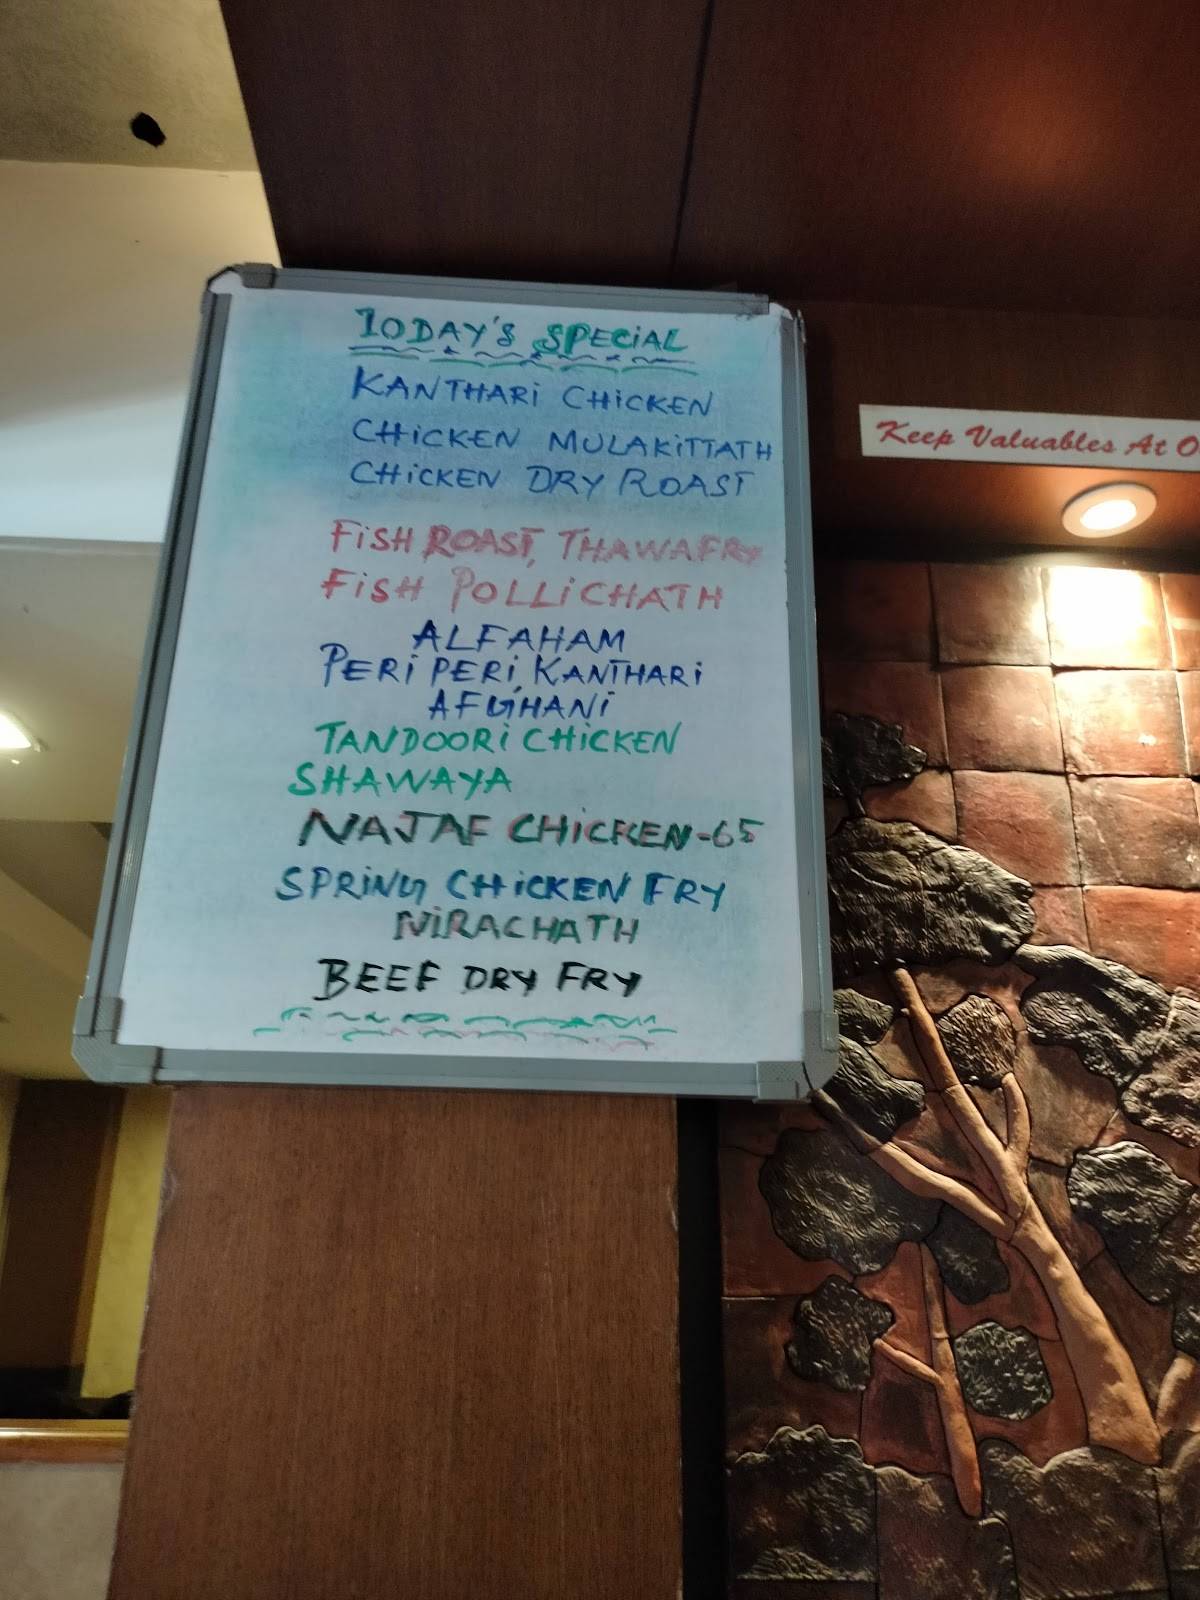 TODAY'S SPECiAL
KANTHARi CHiCKEN
CHiCKEN MULAKiTTATH
CHiCKEN DRY ROAST
FiSH ROAST, THAWAFRY
FiSH POLLiCHATH
ALFAHAM
PERi PERi, KANTHARi
AFGHANi
TANDOORi CHiCKEN
SHAWAYA
NAJAF CHiCKEN-65
SPRiNG CHiCKEN FRY
NiRACHATH
BEEF DRY FRY
Keep Valuables At